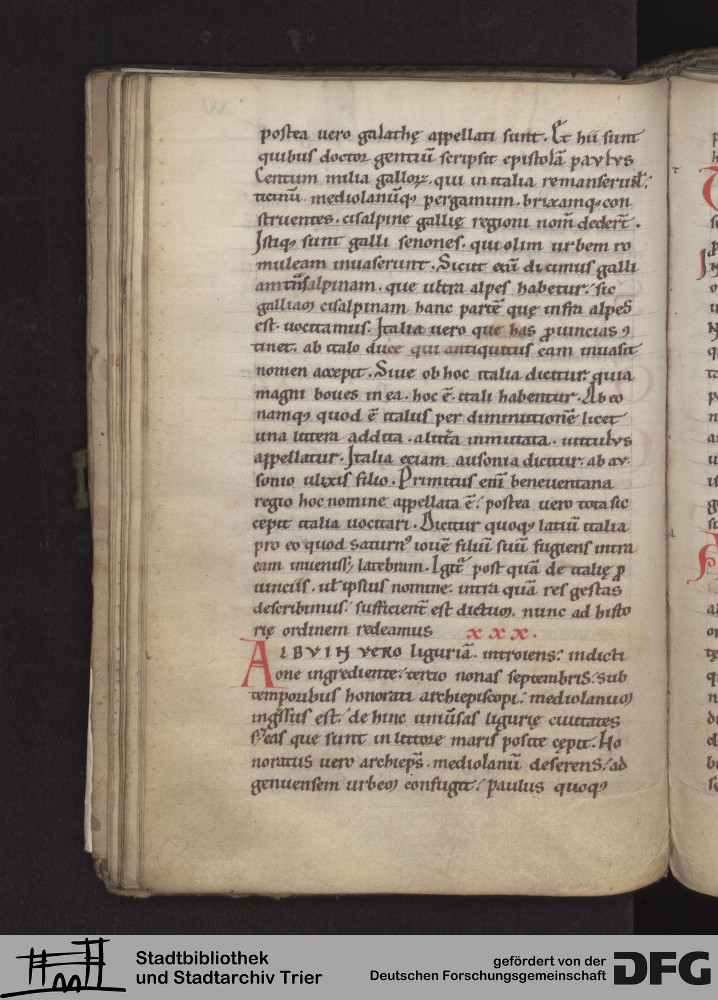 postea uero galathę appellati sunt. Et hii sunt
quibus doctor gentiū scripsit epistolā paulus
Centum milia gallorꝝ. qui in italia remanserunt.
ticinū mediolanūqꝫ pergamum. brixamqꝫ con
struentes. cisalpine gallię regioni nom̄ dedert̄.
Istiqꝫ sunt galli senones. qui olim urbem ro
muleam inuaserunt. Sicut eni̅ dicimus galli
am tn̄salpinam. que ultra alpes habetur. sic
galliaꝫ cisalpinam hanc partē que infra alpes
est. uocitamus. Italia uero que has ꝓuincias ꝯ
tinet. ab italo duce qui antiquitus eam inuasit
nomen accepit. Siue ob hoc italia dicitur. quia
magni boues in ea. hoc ē. itali habentur. Ab eo
namqꝫ quod ē italus per diminutionē licet
una littera addita. altera inmutata. uitulus
appellatur. Italia eciam ausonia dicitur. ab au
sonio ulixis filio. Primitus eni̅ beneuentana
regio hoc nomine appellata ē. postea uero tota sic
cepit italia uocitari. Dicitur quoqꝫ latiū italia
pro eo quod saturn᷒ iouē filiū suū fugiens intra
eam inueniss; latebram. Igit᷑ post quā de italię ꝓ
uinciis. ul̄ ipsius nomine. intra quā res gestas
describimus. sufficient̄ est dictuꝫ. nunc ad histo
rię ordinem redeamus xxx.
ALBVIN vero liguriā. introiens. indicti
one ingrediente. tercio nonas septembris. sub
temporibus honorati archiepiscopi. mediolanuꝫ
ing̅ssus est. de hinc uniūsas ligurię ciuitates
p̄ter eas que sunt in littore maris posite cępit. Ho
noratus uero archiep̄s. mediolanū deserens. ad
genuensem urbeꝫ confugit. paulus quoqꝫ
Stadtbibliothek
und Stadtarchiv Trier
gefördert von der
Deutschen Forschungsgemeinschaft
DFG